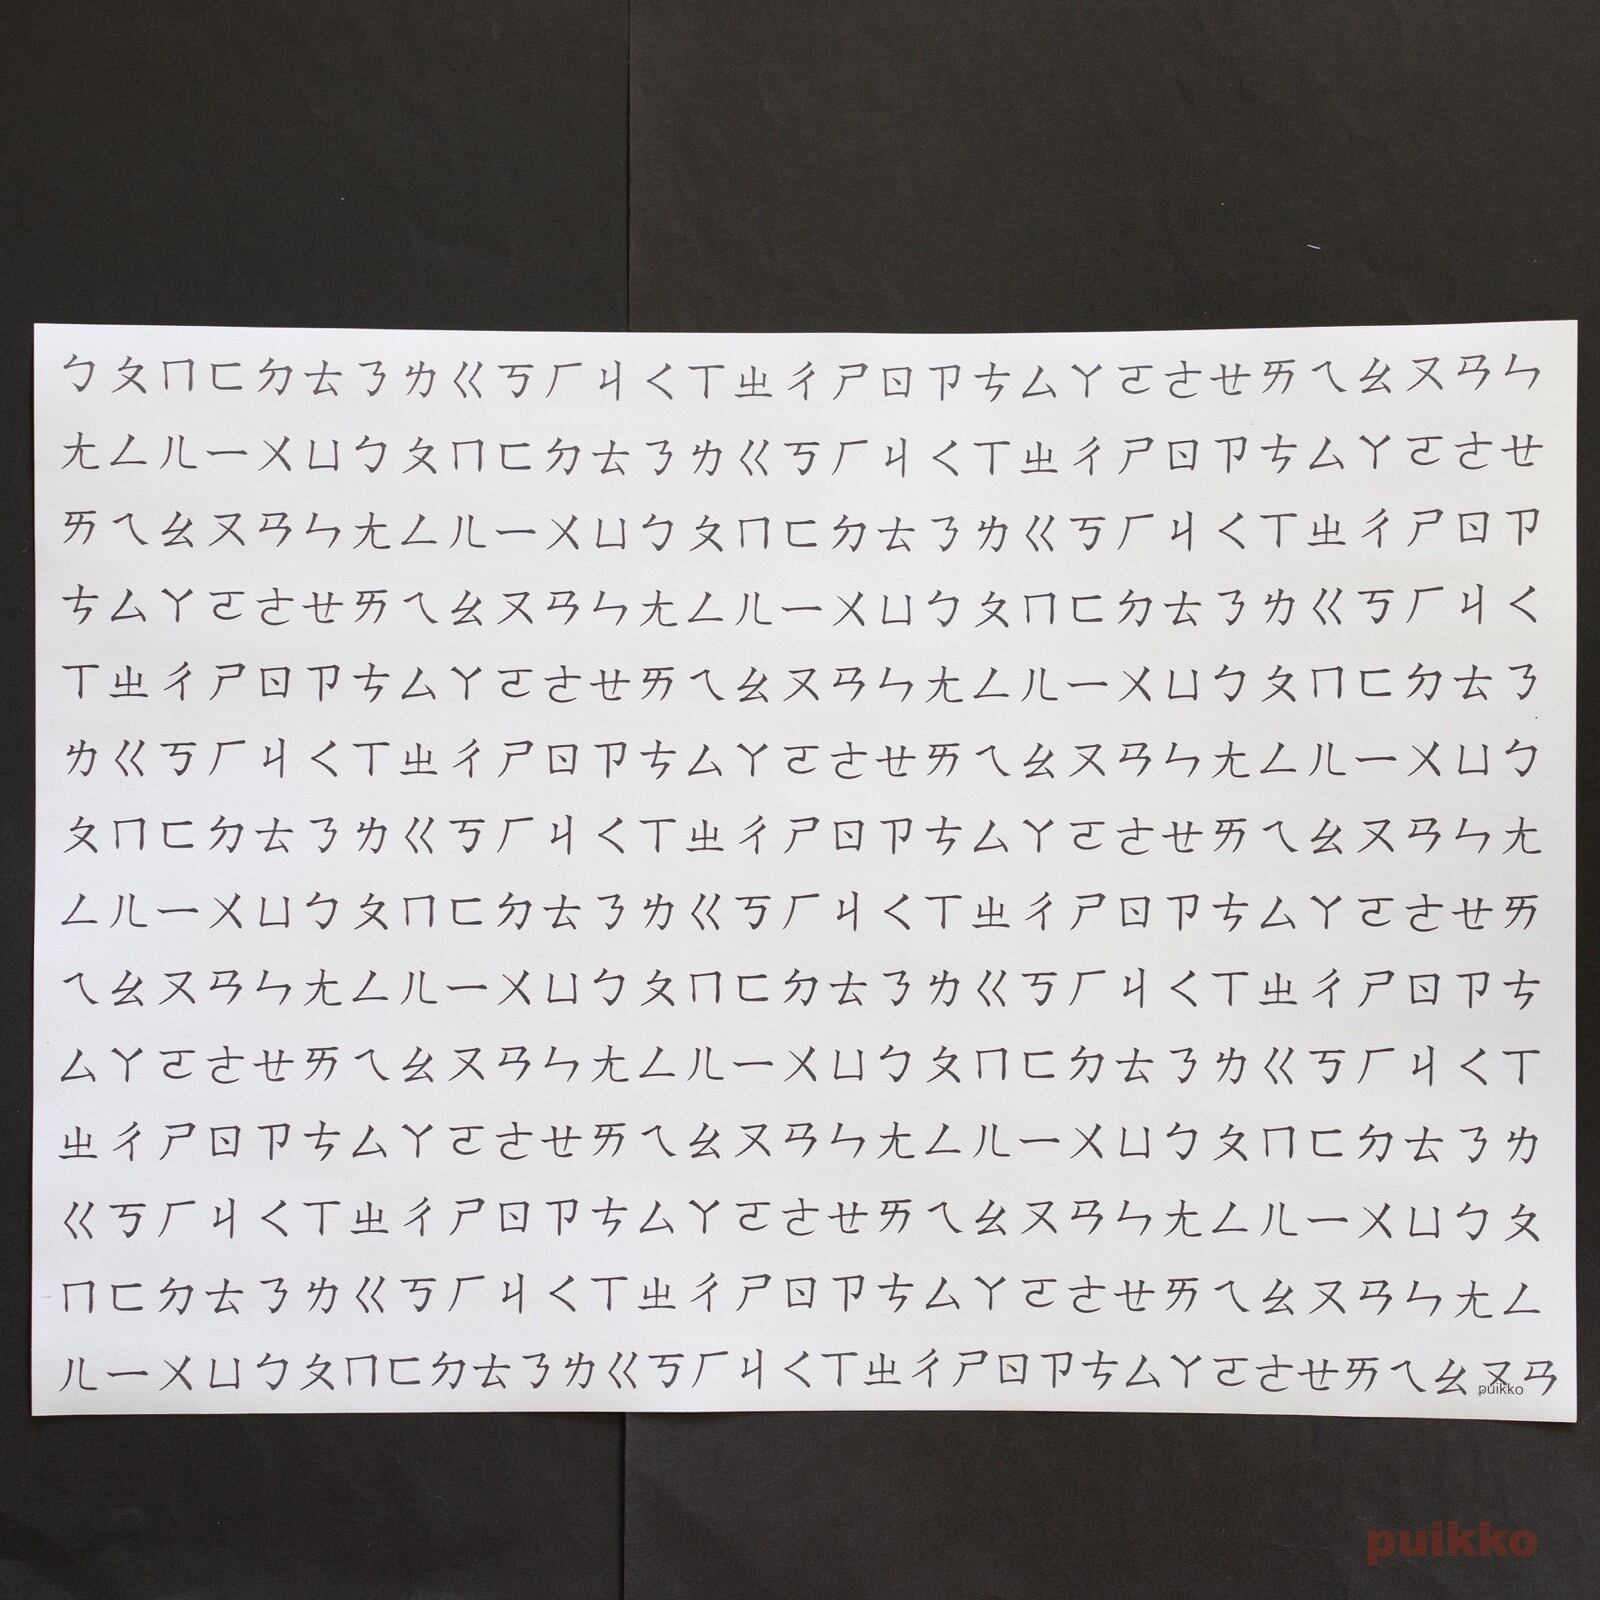 ㄅㄆㄇㄈㄉㄊㄋㄌㄍㄎㄏㄐㄑㄒㄓㄔㄕㄖㄗㄘㄙㄚㄛㄜㄝㄞㄟㄠㄡㄢㄣ
ㄤㄥㄦㄧㄨㄩㄅㄆㄇㄈㄉㄊㄋㄌㄍㄎㄏㄐㄑㄒㄓㄔㄕㄖㄗㄘㄙㄚㄛㄜㄝ
ㄞㄟㄠㄡㄢㄣㄤㄥㄦㄧㄨㄩㄅㄆㄇㄈㄉㄊㄋㄌㄍㄎㄏㄐㄑㄒㄓㄔㄕㄖㄗ
ㄘㄙㄚㄛㄜㄝㄞㄟㄠㄡㄢㄣㄤㄥㄦㄧㄨㄩㄅㄆㄇㄈㄉㄊㄋㄌㄍㄎㄏㄐㄑ
ㄒㄓㄔㄕㄖㄗㄘㄙㄚㄛㄜㄝㄞㄟㄠㄡㄢㄣㄤㄥㄦㄧㄨㄩㄅㄆㄇㄈㄉㄊㄋ
ㄌㄍㄎㄏㄐㄑㄒㄓㄔㄕㄖㄗㄘㄙㄚㄛㄜㄝㄞㄟㄠㄡㄢㄣㄤㄥㄦㄧㄨㄩㄅ
ㄆㄇㄈㄉㄊㄋㄌㄍㄎㄏㄐㄑㄒㄓㄔㄕㄖㄗㄘㄙㄚㄛㄜㄝㄞㄟㄠㄡㄢㄣㄤ
ㄥㄦㄧㄨㄩㄅㄆㄇㄈㄉㄊㄋㄌㄍㄎㄏㄐㄑㄒㄓㄔㄕㄖㄗㄘㄙㄚㄛㄜㄝㄞ
ㄟㄠㄡㄢㄣㄤㄥㄦㄧㄨㄩㄅㄆㄇㄈㄉㄊㄋㄌㄍㄎㄏㄐㄑㄒㄓㄔㄕㄖㄗㄘ
ㄙㄚㄛㄜㄝㄞㄟㄠㄡㄢㄣㄤㄥㄦㄧㄨㄩㄅㄆㄇㄈㄉㄊㄋㄌㄍㄎㄏㄐㄑㄒ
ㄓㄔㄕㄖㄗㄘㄙㄚㄛㄜㄝㄞㄟㄠㄡㄢㄣㄤㄥㄦㄧㄨㄩㄅㄆㄇㄈㄉㄊㄋㄌ
ㄍㄎㄏㄐㄑㄒㄓㄔㄕㄖㄗㄘㄙㄚㄛㄜㄝㄞㄟㄠㄡㄢㄣㄤㄥㄦㄧㄨㄩㄅㄆ
ㄇㄈㄉㄊㄋㄌㄍㄎㄏㄐㄑㄒㄓㄔㄕㄖㄗㄘㄙㄚㄛㄜㄝㄞㄟㄠㄡㄢㄣㄤㄥ
ㄦㄧㄨㄩㄅㄆㄇㄈㄉㄊㄋㄌㄍㄎㄏㄐㄑㄒㄓㄔㄕㄖㄗㄘㄙㄚㄛㄜㄝㄞㄟㄠㄡㄢ
puikko
puikko